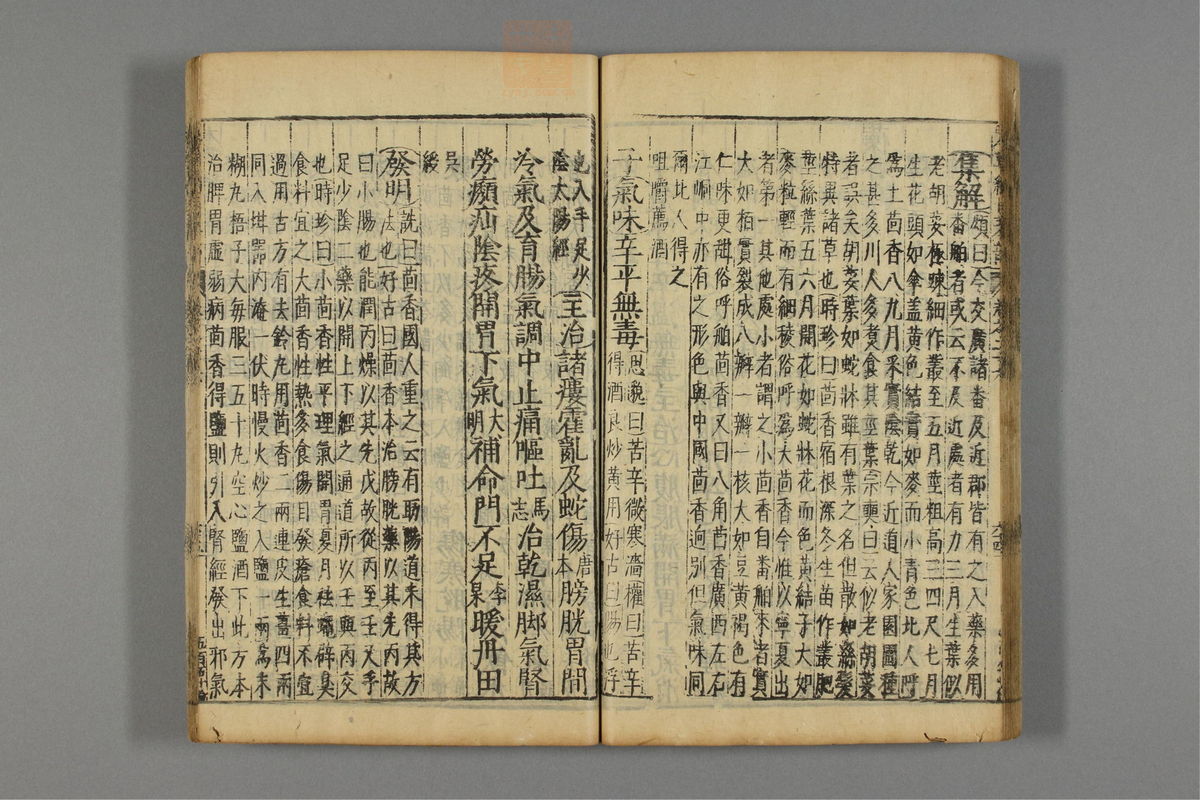 集解頌曰今交廣諸番及近郡皆有之入藥多用
番舶者或云不及近處者有力三月生葉似
老胡荽極疎細作叢至五月莖粗高三四尺七月
生花頭如傘盖黃色結實如麥而小青色北人呼
爲土茴香八九月采實陰乾今近道人家園圃種
之甚多川人多煮食其莖葉宗奭曰云似老胡荽
者誤矣胡荽葉如蛇牀雖有葉之名但散如絲髮
特異諸草也時珍曰茴香宿根深冬生苗作叢肥
莖絲葉五六月開花如蛇牀花而色黃結子大如
麥粒輕而有細稜俗呼爲大茴香今惟以寧夏出
者第一其他處小者謂之小茴香自番舶來者實
大如栢實裂成八瓣一瓣一核大如豆黃褐色有
仁味更甜俗呼舶茴香又曰八角茴香廣西左右
江峒中亦有之形色與中國茴香迥別但氣味同
爾北人得之
咀嚼薦酒
子氣味辛平無毒思邈曰苦辛微寒濇權曰苦辛
得酒良炒黃用好古曰陽也浮
也入手足少
陰太陽經主治諸瘻霍亂及蛇傷唐本膀胱胃間
冷氣及育腸氣調中止痛嘔吐馬志治乾濕脚氣腎
勞㿗疝陰疼開胃下氣大明補命門不足李杲暖丹田
吳
綬
發明詵曰茴香國人重之云有助陽道未得其方
法也好古曰茴香本治膀胱藥以其先丙故
曰小腸也能潤丙燥以其先戊故從丙至壬又手
足少陰二藥以開上下經之通道所以壬與丙交
也時珍曰小茴香性平理氣開胃夏月祛蠅辟臭
食料宜之大茴香性熱多食傷目發瘡食料不宜
過用古方有去鈴丸用茴香二兩連皮生薑四兩
同入坩器內淹一伏時慢火炒之入鹽一兩爲末
糊丸梧子大每服三五十丸空心鹽酒下此方本
治脾胃虛弱病茴香得鹽則引入腎經發出邪氣